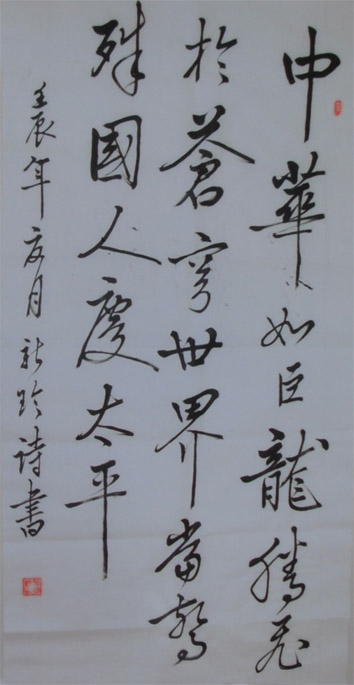 中華如巨龍騰飛
於蒼穹世界當驚
殊國人慶太平
壬辰年夏月玲詩書